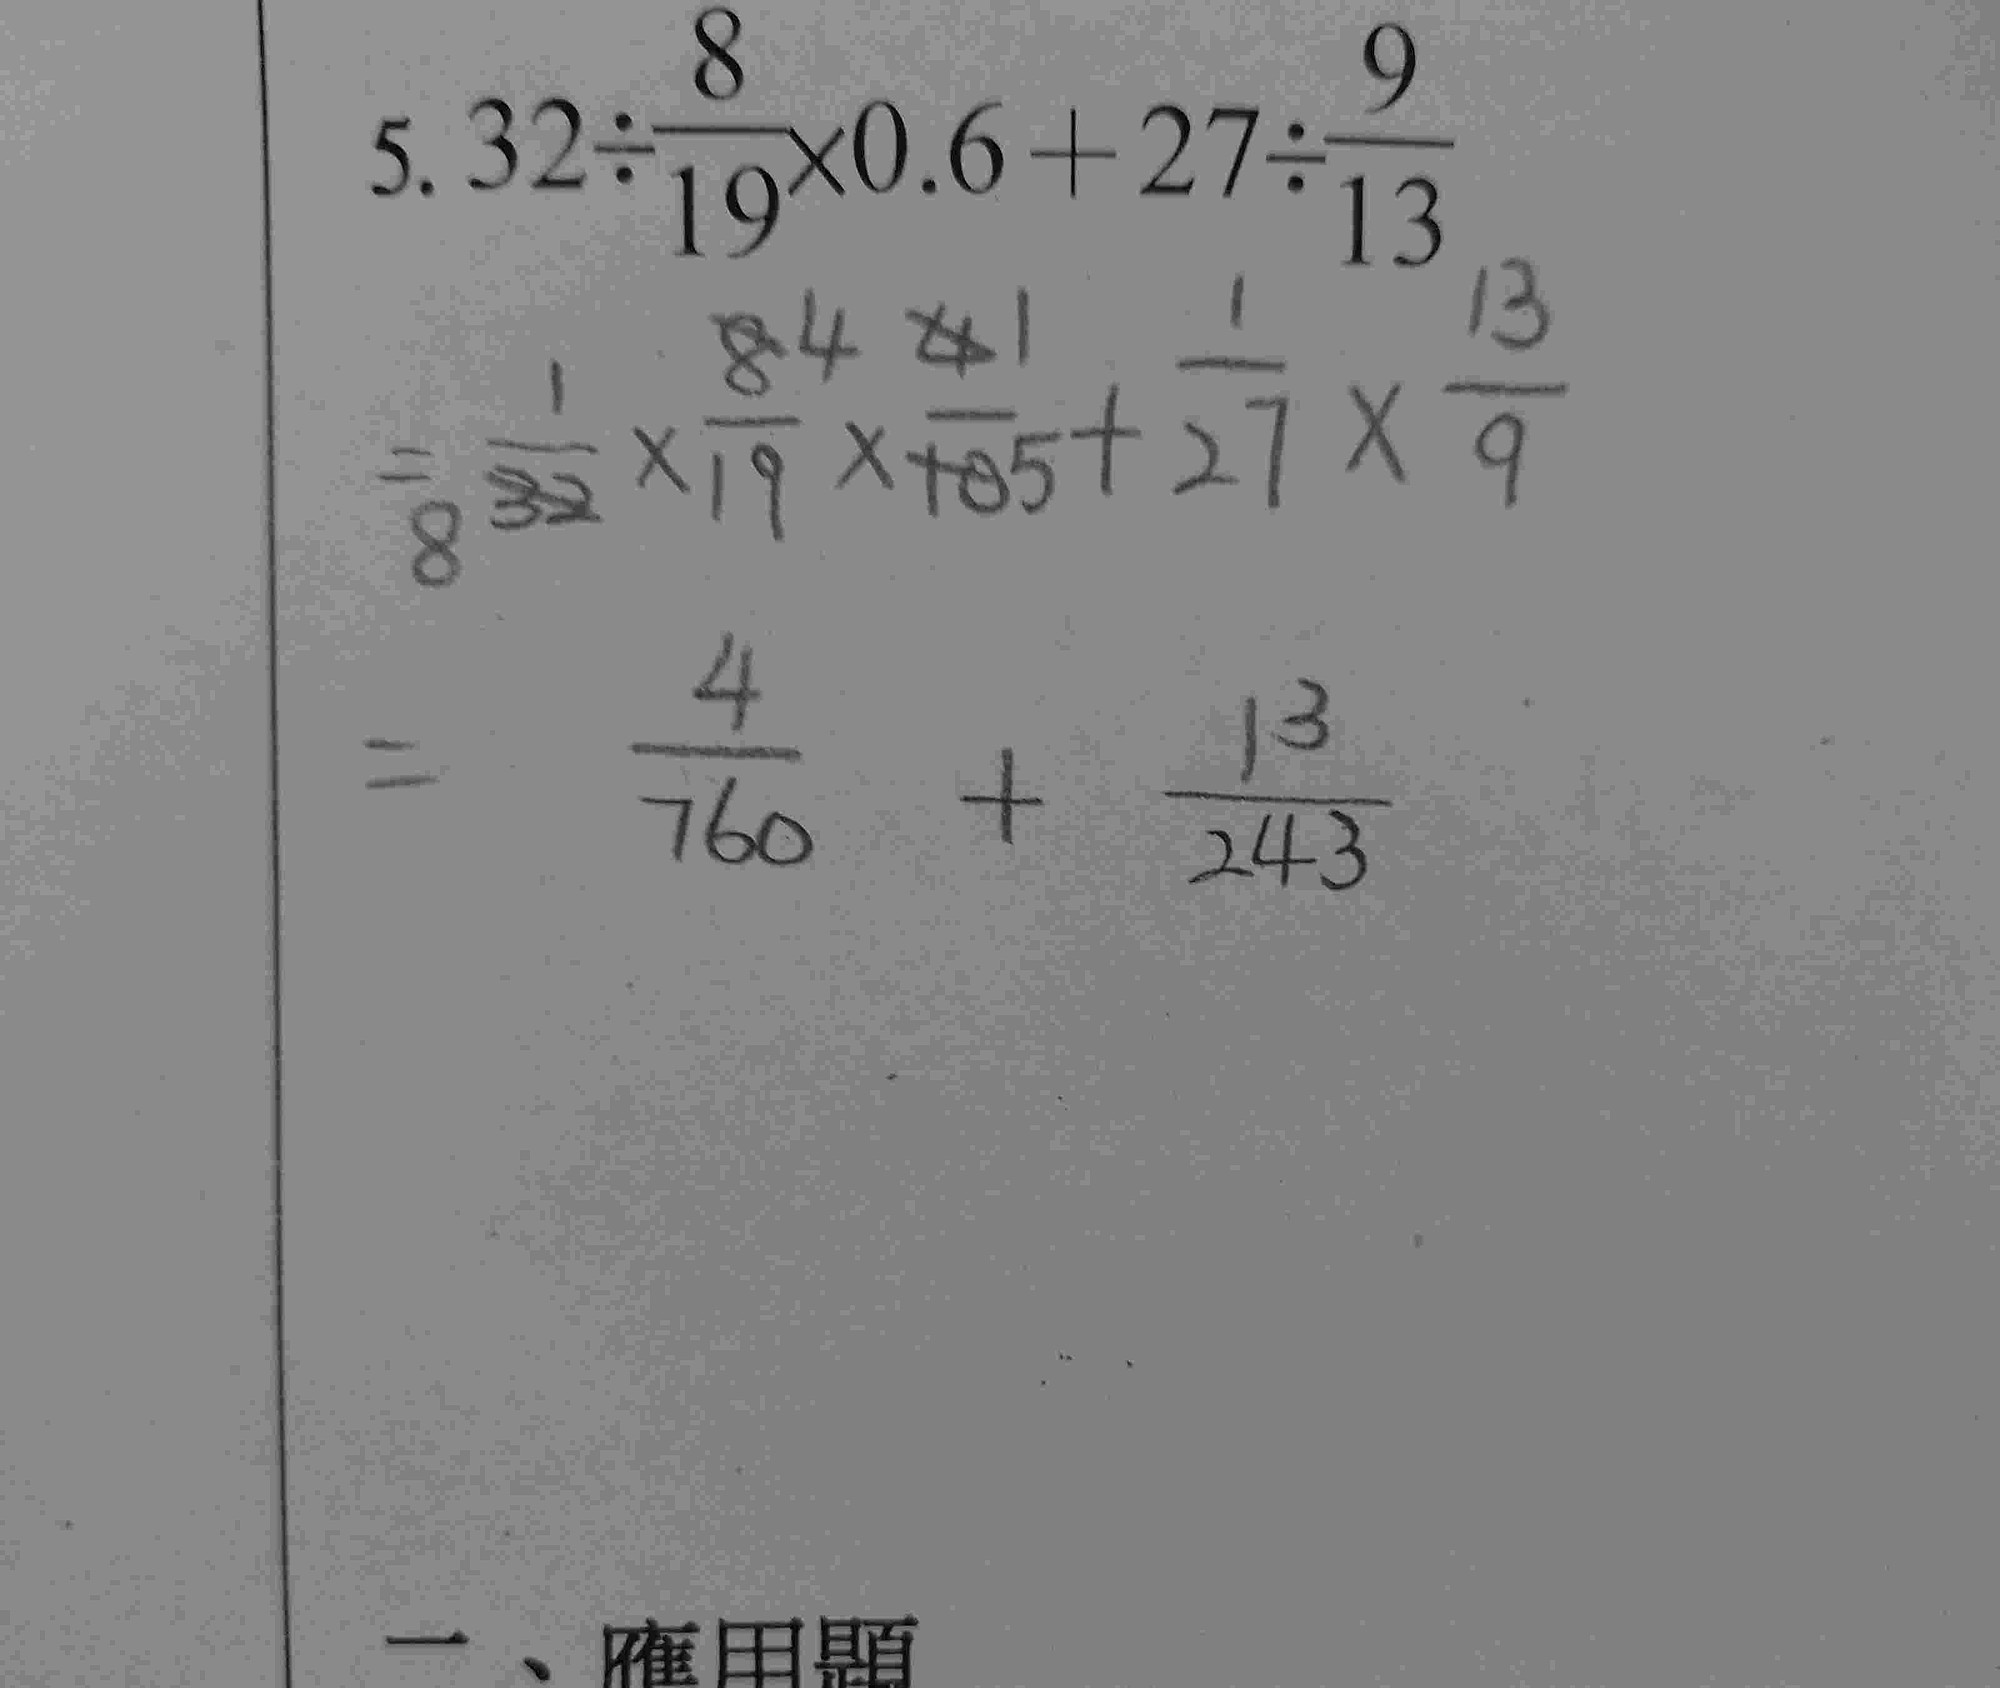 5. 32÷8/19×0.6+27÷9/13
= 1/32 8 × 8 4/19 × 4 1/10 5 + 1/27 × 13/9
= 4/760 + 13/243
一、應用題